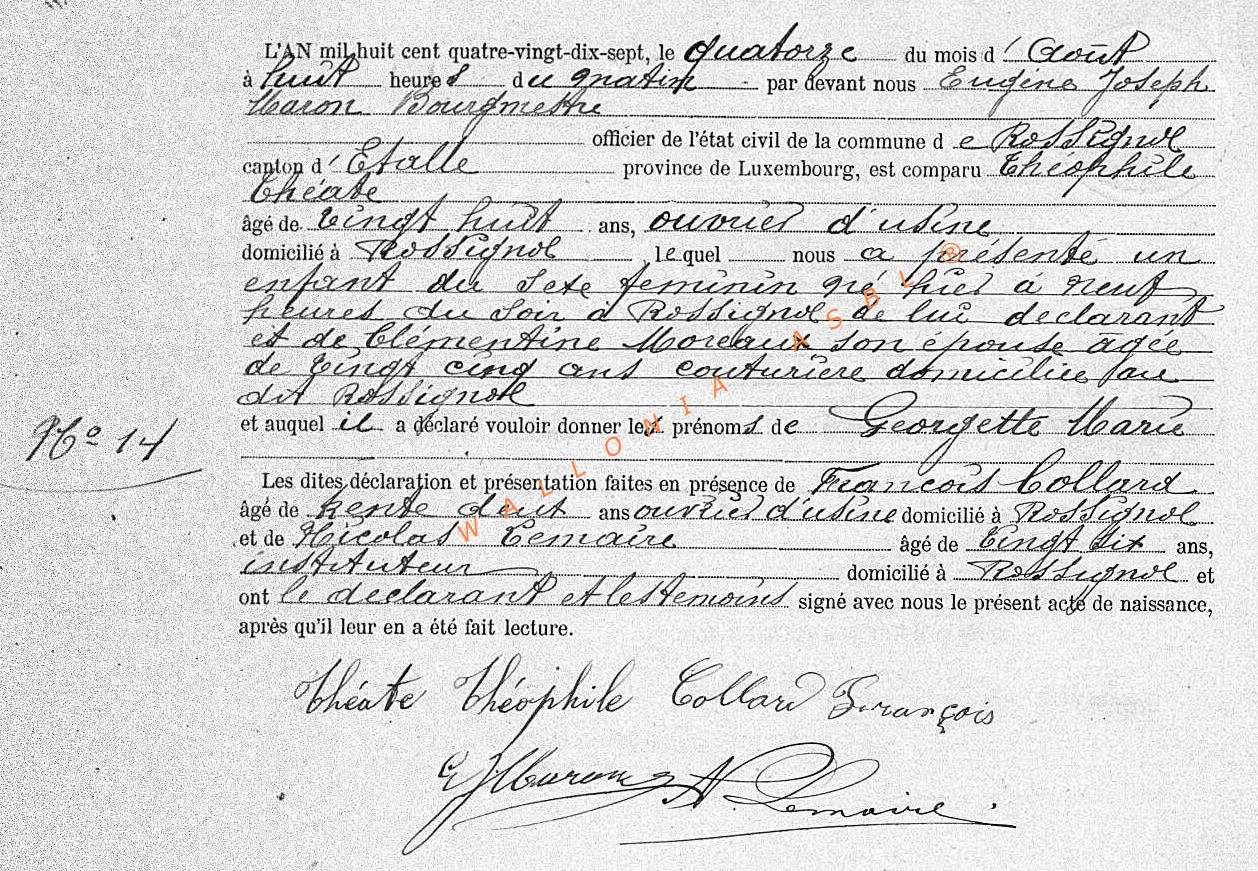 L'AN mil huit cent quatre-vingt-dix-sept, le quatorze du mois d'Août
à huit heures du matin par devant nous Eugène Joseph
Maron Bourgmestre
officier de l'état civil de la commune de Rossignol
canton d'Etalle province de Luxembourg, est comparu Théophile
Théate
âgé de vingt huit ans, ouvrier d'usine
domicilié à Rossignol, lequel nous a présenté un
enfant du sexe feminin né hier à neuf
heures du soir à Rossignol de lui declarant
et de Clémentine Moreaux son épouse agée
de vingt cinq ans couturière domiciliée au
dit Rossignol
et auquel il a déclaré vouloir donner les prénoms de Georgette Marie
N° 14
Les dites déclaration et présentation faites en présence de François Collard
âgé de trente deux ans ouvrier d'usine domicilié à Rossignol
et de Nicolas Lemaire âgé de vingt six ans,
instituteur domicilié à Rossignol et
ont le declarant et les temoins signé avec nous le présent acte de naissance,
après qu'il leur en a été fait lecture.
Théate Théophile Collard François
EJMaron N. Lemaire
WALLONIA ASBL ®